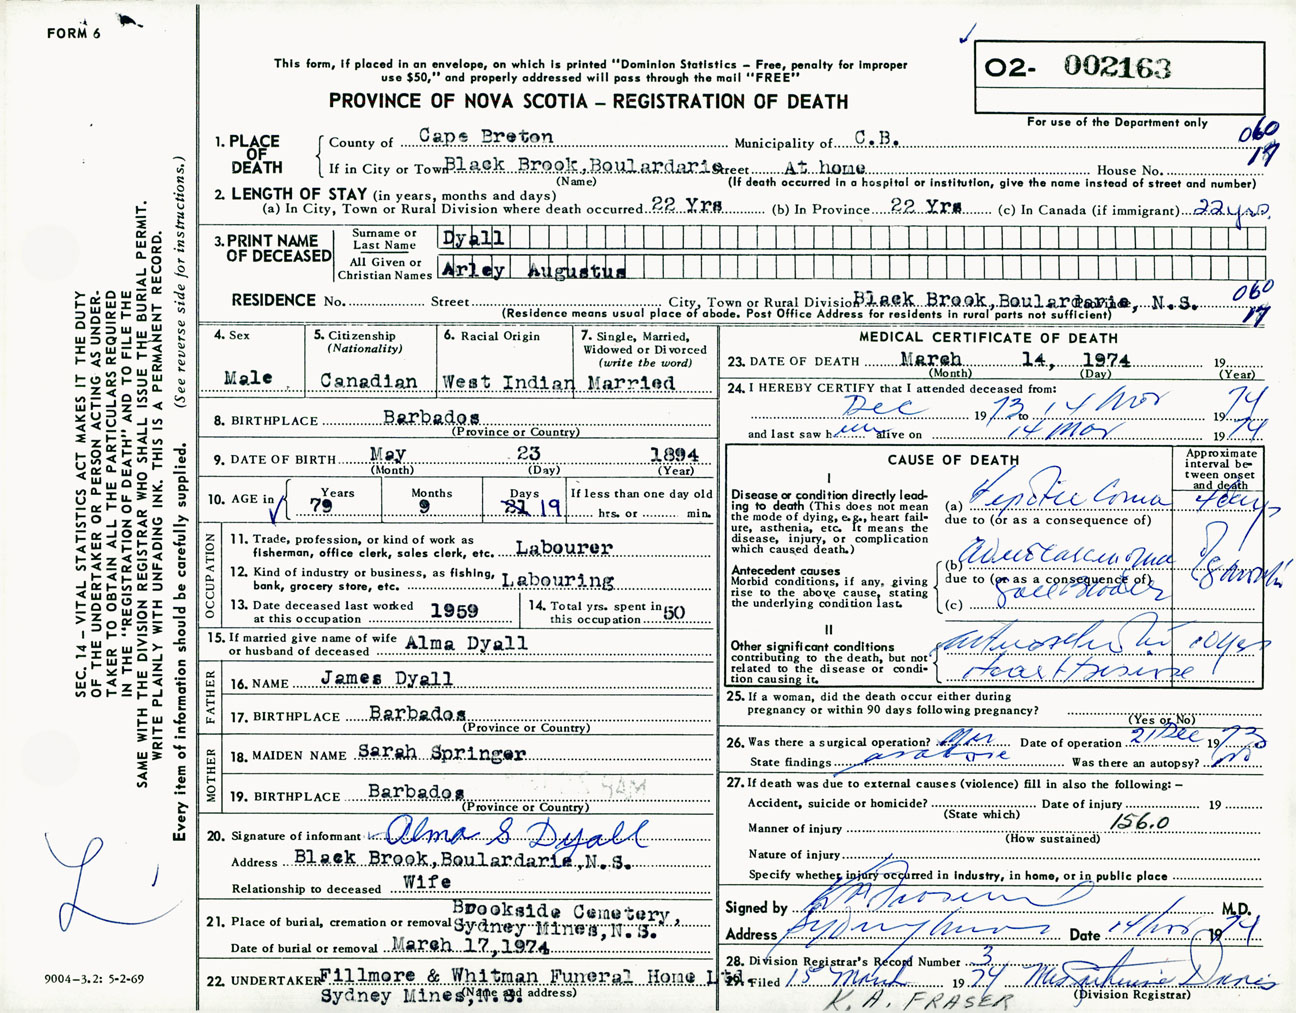 FORM 6
This form, if placed in an envelope, on which is printed "Dominion Statistics – Free, penalty for improper
use $50," and properly addressed will pass through the mail "FREE"
PROVINCE OF NOVA SCOTIA – REGISTRATION OF DEATH
O2- 002163
For use of the Department only
060
17
SEC. 14 – VITAL STATISTICS ACT MAKES IT THE DUTY
OF THE UNDERTAKER OR PERSON ACTING AS UNDER-
TAKER TO OBTAIN ALL THE PARTICULARS REQUIRED
IN THE "REGISTRATION OF DEATH" AND TO FILE THE
SAME WITH THE DIVISION REGISTRAR WHO SHALL ISSUE THE BURIAL PERMIT.
WRITE PLAINLY WITH UNFADING INK. THIS IS A PERMANENT RECORD.
Every item of information should be carefully supplied. (See reverse side for instructions.)
1. PLACE OF DEATH County of Cape Breton Municipality of C.B.
If in City or Town Black Brook, Boulardarie Street At home House No.
(Name) (If death occurred in a hospital or institution, give the name instead of street and number)
2. LENGTH OF STAY (in years, months and days)
(a) In City, Town or Rural Division where death occurred 22 Yrs (b) In Province 22 Yrs (c) In Canada (if immigrant) 22 yrs.
3. PRINT NAME OF DECEASED Surname or Last Name Dyall
All Given or Christian Names Arley Augustus
RESIDENCE No. Street City, Town or Rural Division Black Brook, Boulardarie, N.S.
060
17
(Residence means usual place of abode. Post Office Address for residents in rural parts not sufficient)
4. Sex Male
5. Citizenship (Nationality) Canadian
6. Racial Origin West Indian
7. Single, Married, Widowed or Divorced (write the word) Married
8. BIRTHPLACE Barbados
(Province or Country)
9. DATE OF BIRTH May 23 1894
(Month) (Day) (Year)
10. AGE in Years 79 Months 9 Days 21 19 If less than one day old
hrs. or min.
OCCUPATION
11. Trade, profession, or kind of work as
fisherman, office clerk, sales clerk, etc. Labourer
12. Kind of industry or business, as fishing,
bank, grocery store, etc. Labouring
13. Date deceased last worked
at this occupation 1959
14. Total yrs. spent in
this occupation 50
15. If married give name of wife
or husband of deceased Alma Dyall
FATHER
16. NAME James Dyall
17. BIRTHPLACE Barbados
(Province or Country)
MOTHER
18. MAIDEN NAME Sarah Springer
19. BIRTHPLACE Barbados
(Province or Country)
20. Signature of informant Alma S Dyall
Address Black Brook, Boulardarie, N.S.
Relationship to deceased Wife
21. Place of burial, cremation or removal Brookside Cemetery,
Sydney Mines, N.S.
Date of burial or removal March 17, 1974
22. UNDERTAKER Fillmore & Whitman Funeral Home Ltd.
Sydney Mines, N.S.
(Name and address)
MEDICAL CERTIFICATE OF DEATH
23. DATE OF DEATH March 14, 1974 19
(Month) (Day) (Year)
24. I HEREBY CERTIFY that I attended deceased from:
Dec 1973 to 14 Mar 1974
and last saw h im alive on 14 Mar 1974
CAUSE OF DEATH
Approximate interval between onset and death
I
Disease or condition directly lead-
ing to death (This does not mean
the mode of dying, e.g., heart fail-
ure, asthenia, etc. It means the
disease, injury, or complication
which caused death.)
(a) Hepatic Coma 4 days
due to (or as a consequence of)
Antecedent causes
Morbid conditions, if any, giving
rise to the above cause, stating
the underlying condition last.
(b) Adenocarcinoma
due to (or as a consequence of)
(c) Gall Bladder
II
Other significant conditions
contributing to the death, but not
related to the disease or condi-
tion causing it.
10 yrs
Heart Disease
25. If a woman, did the death occur either during
pregnancy or within 90 days following pregnancy?
(Yes or No)
26. Was there a surgical operation? Date of operation 21 Dec 1973
State findings as above Was there an autopsy? no
27. If death was due to external causes (violence) fill in also the following: –
Accident, suicide or homicide? Date of injury 19
(State which)
Manner of injury 156.0
(How sustained)
Nature of injury
Specify whether injury occurred in Industry, in home, or in public place
Signed by M.D.
Address Sydney Mines Date 14/Mar 1974
28. Division Registrar's Record Number 3
29. Filed 15 March 1974 Davis
(Division Registrar)
K. A. FRASER
9004–3.2: 5-2-69